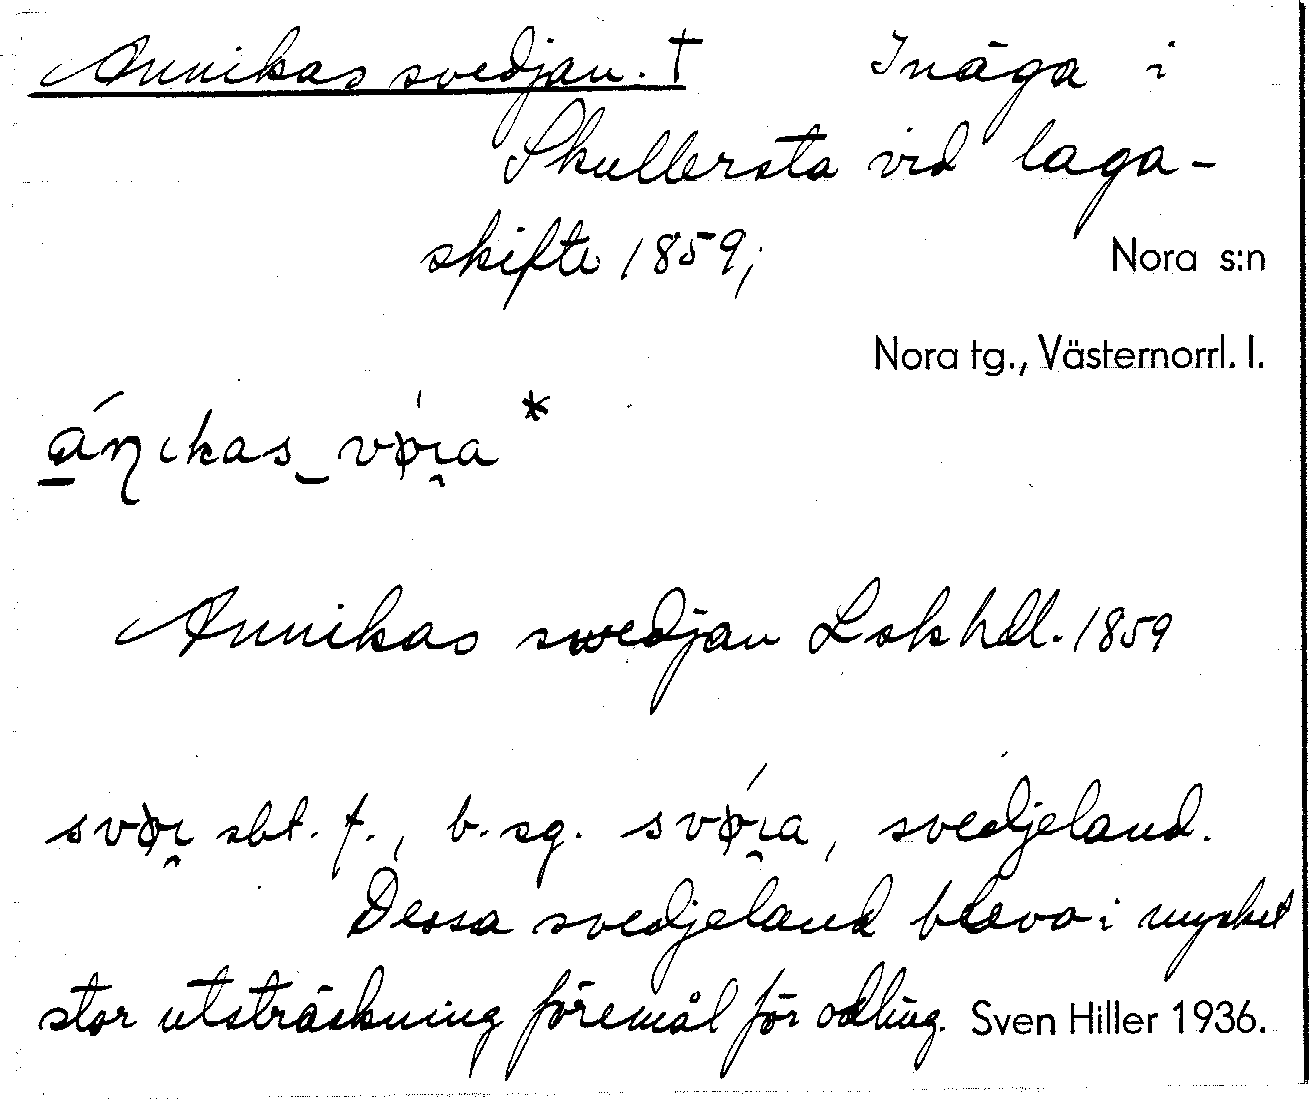 Annikas svedjan. † Inäga i
Skullersta vid laga-
skifte 1859;
Nora s:n
Nora tg., Västernorrl. l.
ánikas_vǿ̯ɩa *
Annikas swedjan Lskhdl. 1859
svøɩ̯ sbt. f., b. sg. svǿɩ̯a, svedjeland.
Dessa svedjeland blevo i mycket
stor utsträckning föremål för odling. Sven Hiller 1936.